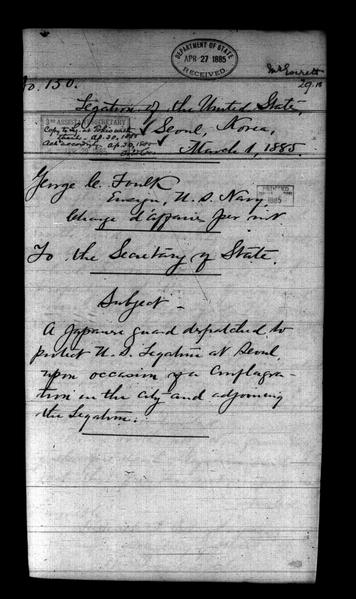 DEPARTMENT OF STATE
APR 27 1885
RECEIVED
No. 150.
Legation of the United States,
3RD ASSISTANT SECRETARY
Seoul, Korea,
March 1, 1885.
George C. Foulk
Ensign, U. S. Navy,
Chargé d'affaires per int.
1885
To the Secretary of State.
Subject –
A Japanese guard dispatched to
protect U. S. Legation at Seoul,
upon occasion of a conflagra-
tion in the city and adjoining
the Legation.